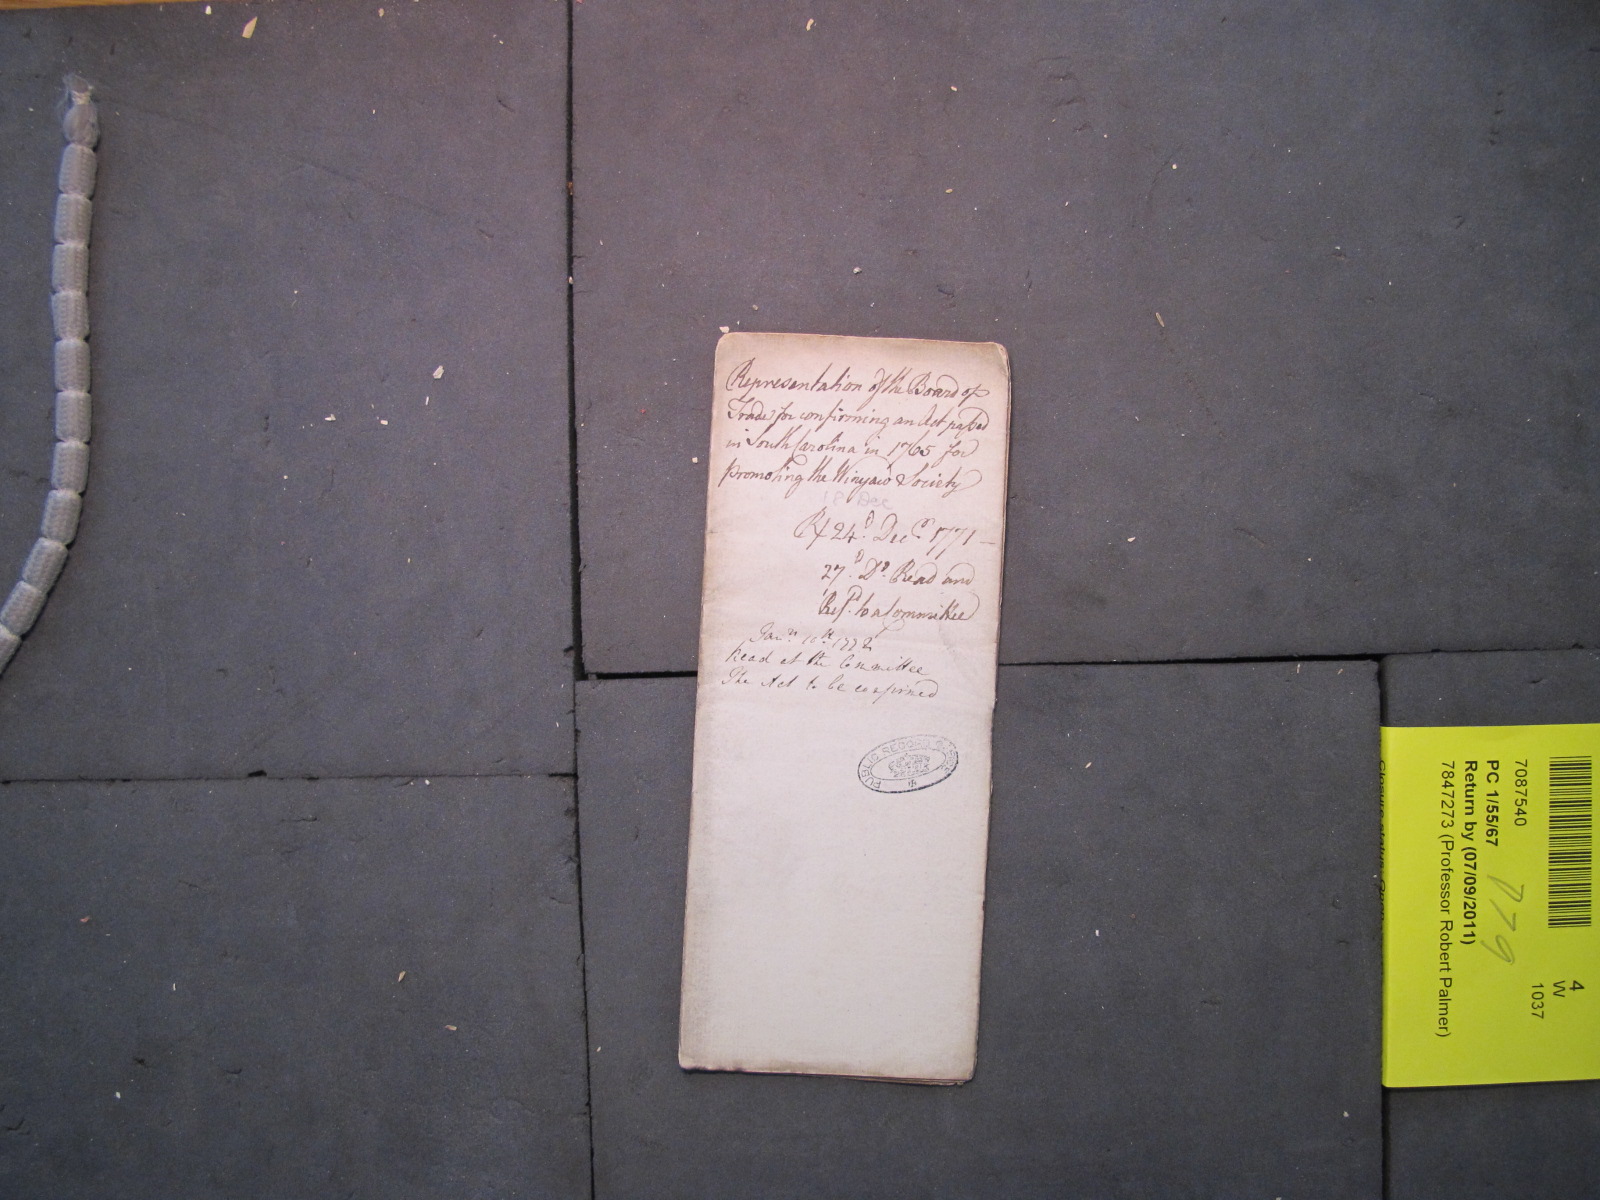 Representation of the Board of
Trade for confirming an Act passed
in South Carolina in 1765 for
promoting the Winyaw Society
18 Dec
R/ 24.th Decr. 1771 —
27.th Do. Read and
Refd. to a Committee
Jany. 10th. 1772
Read at the Committee
The Act to be confirmed
PUBLIC RECORD OFFICE
4
W
1037
7087540
PC 1/55/67
D79
Return by (07/09/2011)
7847273 (Professor Robert Palmer)
Closure status: Open